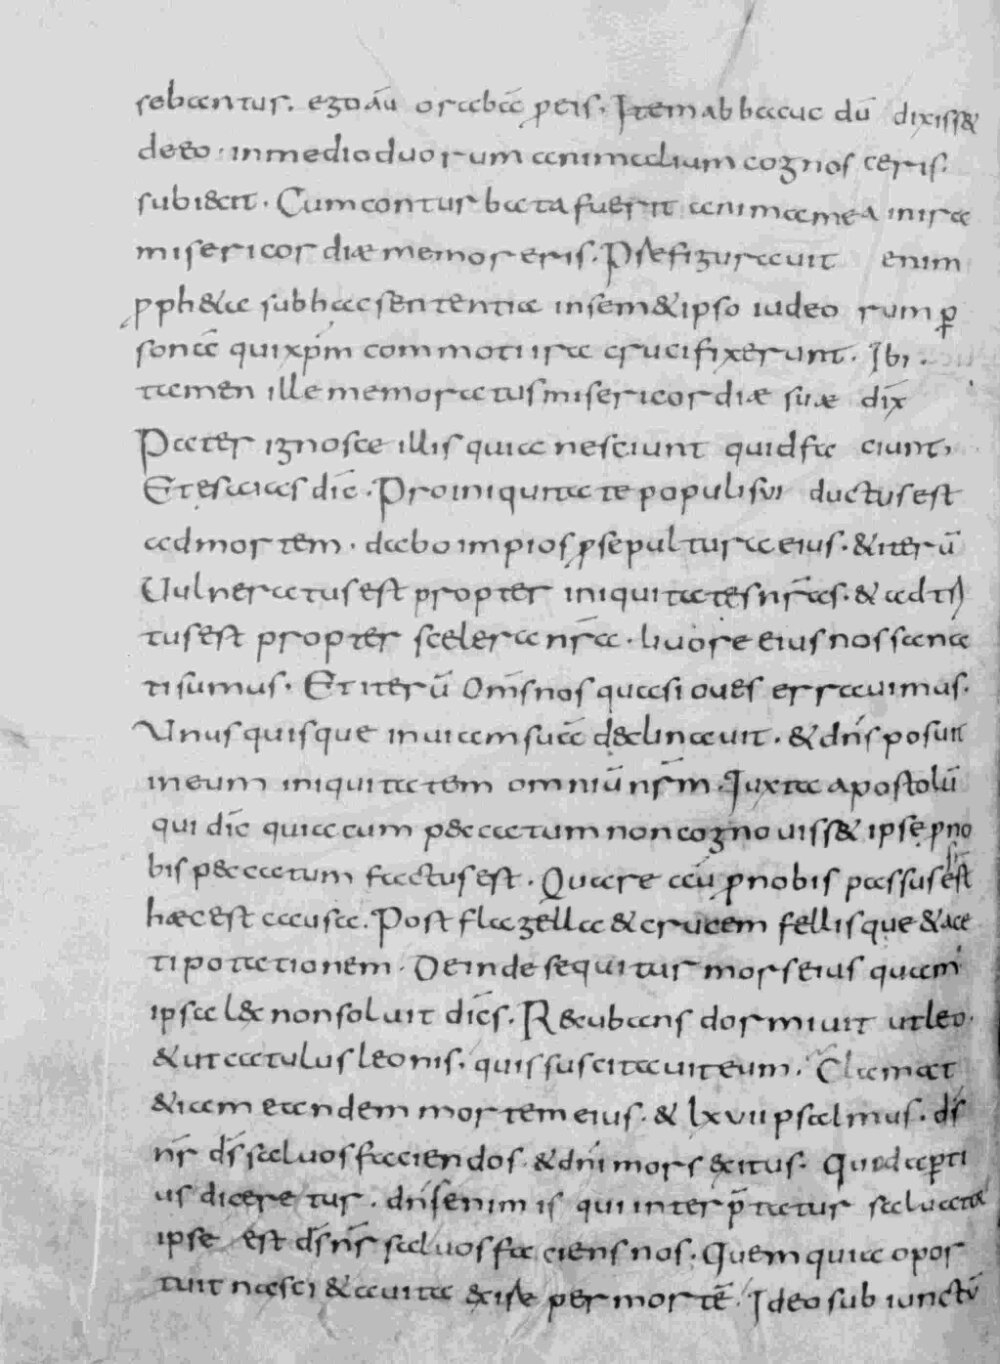 sebantur. ego aū orabā p eis. Item abbacuc dū dixiss&
de eo · in medio duorum animalium cognosceris.
subiecit. Cum conturbata fuerit anima mea in ira
misericordiæ memor eris. Psefigurauit enim
pph&a sub hac sententia in sem& ipso iudeorum p
sonā qui xpm̄ commoti ira crucifixerunt. Ibi
tamen ille memoratus misericordiæ suæ dix̄
Pater ignosce illis quia nesciunt quid faciunt,
Et esaias dic̄. Pro iniquitate populi sui ductus est
ad mortem · dabo impios p sepultura eius · & iterū
Uulneratus est propter iniquitates nr̄as · & adtri
tus est propter scelera nr̄a · liuore eius nos sana
ti sumus. Et iterū Om̄s nos quasi oues errauimus.
Unusquisque in uicem suā declinauit. & dn̄s posuit
in eum iniquitatem omniū nr̄m. Iuxta apostolū
qui dic̄ quia cum peccatum non cognouiss& ipse p no
bis peccatum factus est. Quare aū p nobis passus est
hæc est causa. Post flagella & crucem fellisque & ace
ti potationem. Deinde sequitur mors eius quam
ipsa lex non soluit dic̄s. Recubans dormiuit ut leo.
& ut catulus leonis. quis suscitauit eum. Clamat
& iam eandem mortem eius. & lxvii psalmus. ds̄
nr̄ ds̄ saluos faciendos & dn̄i mors exitus. Quod apti
us diceretur. dn̄s enim is qui inter p̄tatur saluator
ipse est ds̄ nr̄ saluos faciens nos. Quem quia opor
tuit nasci & a uita exise per mortē. Ideo subiunctū